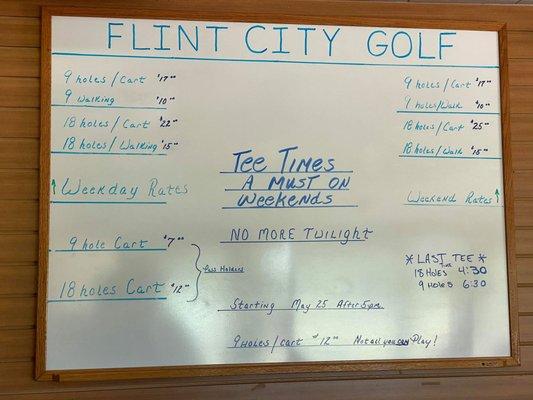 FLINT CITY GOLF
9 holes/Cart $17.00
9 Walking $10.00
18 holes/Cart $22.00
18 holes/Walking $15.00
Weekday Rates
9 hole Cart $7.00
18 holes Cart $12.00
Pass Holders
Tee Times
A Must on
Weekends
NO MORE TWILIGHT
Starting May 25 After 5pm
9 Holes/Cart $12.00 Not all you can Play!
9 holes/Cart $17.00
9 holes/Walk $10.00
18 holes/Cart $25.00
18 holes/Walk $15.00
Weekend Rates
* LAST TEE *
Time
18 Holes 4:30
9 Holes 6:30